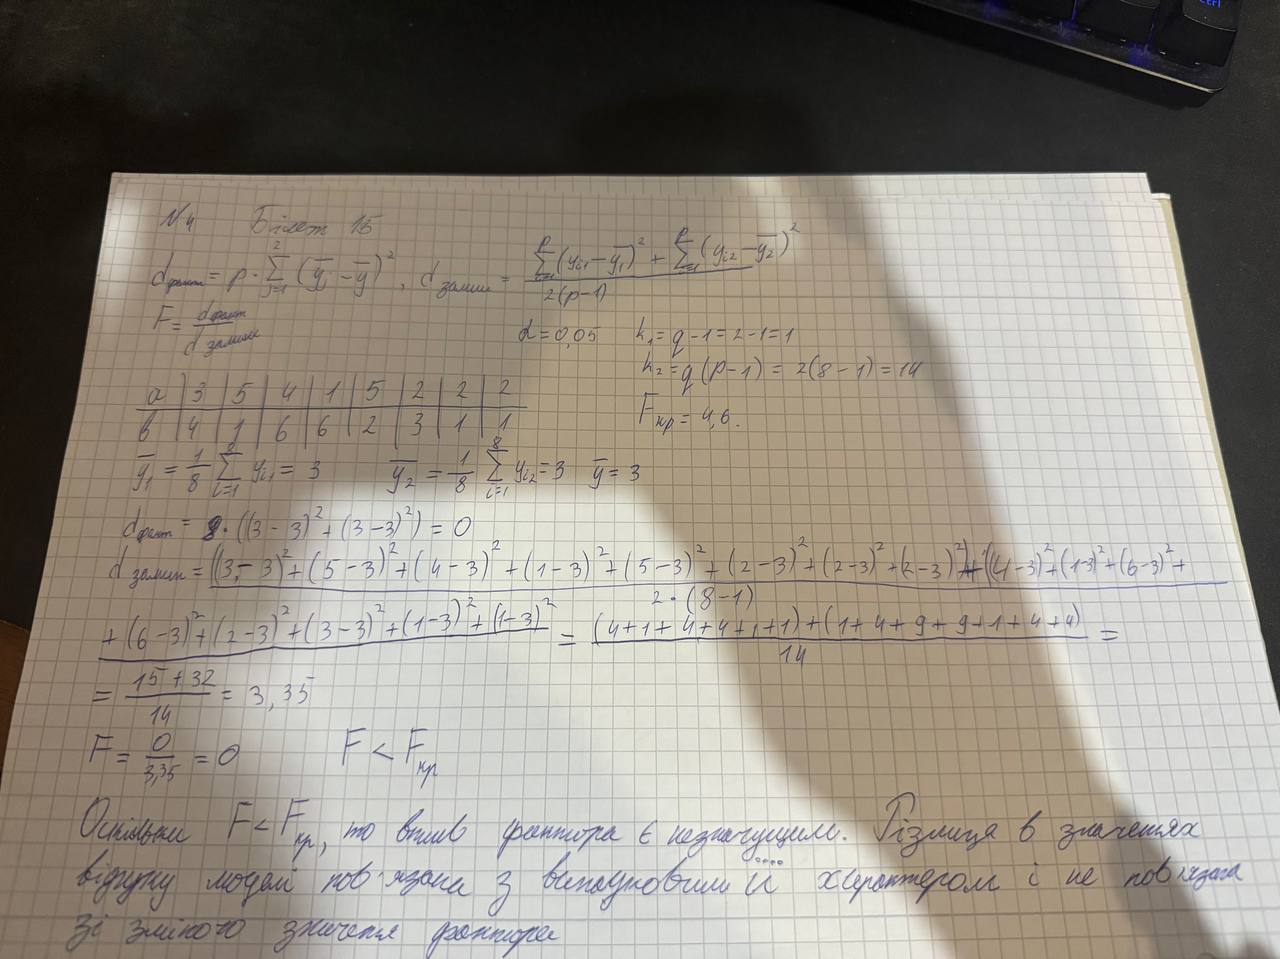 №4 Білет 15
d факт = p · Σ_{j=1}^{2} (ȳ_j − ȳ)², d залиш = (Σ_{i=1}^{p} (y_{i1} − ȳ_1)² + Σ_{i=1}^{p} (y_{i2} − ȳ_2)²) / 2(p−1)
F = d факт / d залиш
α = 0,05 k₁ = q − 1 = 2 − 1 = 1
k₂ = q(p−1) = 2(8−1) = 14
F кр = 4,6.
a | 3 | 5 | 4 | 1 | 5 | 2 | 2 | 2
b | 4 | 1 | 6 | 6 | 2 | 3 | 1 | 1
ȳ₁ = 1/8 Σ_{i=1}^{8} y_{i1} = 3 ȳ₂ = 1/8 Σ_{i=1}^{8} y_{i2} = 3 ȳ = 3
d факт = 8·((3−3)² + (3−3)²) = 0
d залиш = ((3−3)² + (5−3)² + (4−3)² + (1−3)² + (5−3)² + (2−3)² + (2−3)² + (2−3)²) + ((4−3)² + (1−3)² + (6−3)² +
2·(8−1)
+ (6−3)² + (2−3)² + (3−3)² + (1−3)² + (1−3)² = (4+1+4+4+1+1) + (1+4+9+9+1+4+4) / 14 =
= (15+32) / 14 = 3,35
F = 0 / 3,35 = 0 F < F кр
Оскільки F < F кр, то вплив фактора є незначущим. Різниця в значеннях
відгуку моделі пов'язана з випадковим її характером і не пов'язана
зі зміною значення фактора